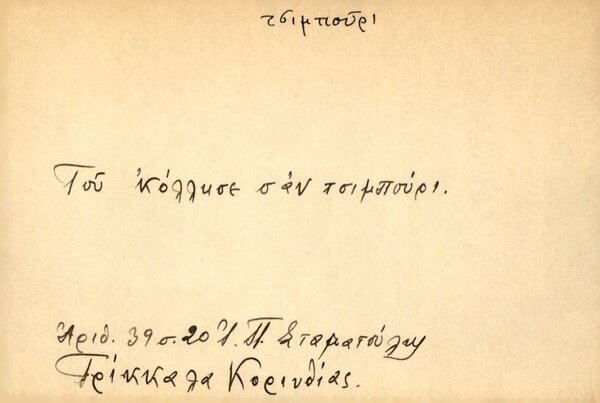 τσιμποῦρι
Τοῦ ἐκόλλησε σὰν τσιμπούρι.
Ἀριθ. 39 σ. 20 Ἰ. Π. Σταματούλη
Τρίκκαλα Κορινθίας.